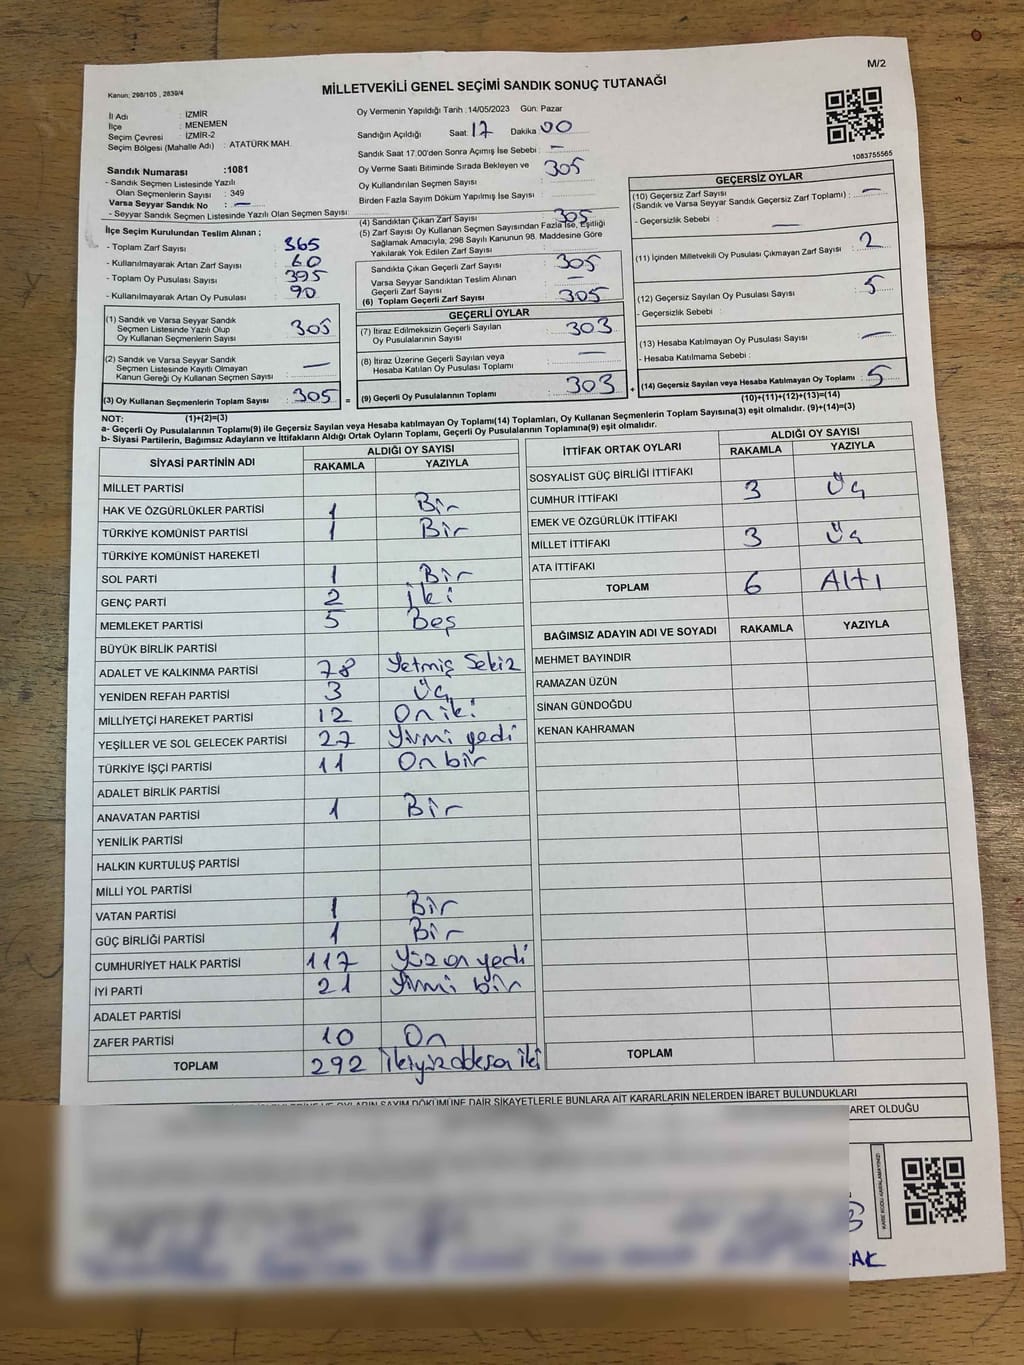 M/2
Kanun: 298/105 , 2839/4
MİLLETVEKİLİ GENEL SEÇİMİ SANDIK SONUÇ TUTANAĞI
İl Adı : İZMİR
İlçe : MENEMEN
Seçim Çevresi : İZMİR-2
Seçim Bölgesi (Mahalle Adı) : ATATÜRK MAH.
Oy Vermenin Yapıldığı Tarih :14/05/2023 Gün: Pazar
Sandığın Açıldığı Saat 17 Dakika 00
Sandık Saat 17.00'den Sonra Açımış İse Sebebi : —
Oy Verme Saati Bitiminde Sırada Bekleyen ve
Oy Kullandırılan Seçmen Sayısı : 305
Birden Fazla Sayım Döküm Yapılmış İse Sayısı :
1083755565
Sandık Numarası :1081
- Sandık Seçmen Listesinde Yazılı
Olan Seçmenlerin Sayısı : 349
Varsa Seyyar Sandık No : —
- Seyyar Sandık Seçmen Listesinde Yazılı Olan Seçmen Sayısı:
İlçe Seçim Kurulundan Teslim Alınan ;
- Toplam Zarf Sayısı : 365
- Kullanılmayarak Artan Zarf Sayısı : 60
- Toplam Oy Pusulası Sayısı : 395
- Kullanılmayarak Artan Oy Pusulası : 90
(1) Sandık ve Varsa Seyyar Sandık
Seçmen Listesinde Yazılı Olup
Oy Kullanan Seçmenlerin Sayısı : 305
(2) Sandık ve Varsa Seyyar Sandık
Seçmen Listesinde Kayıtlı Olmayan
Kanun Gereği Oy Kullanan Seçmen Sayısı : —
(3) Oy Kullanan Seçmenlerin Toplam Sayısı : 305
(1)+(2)=(3)
(4) Sandıktan Çıkan Zarf Sayısı : 305
(5) Zarf Sayısı Oy Kullanan Seçmen Sayısından Fazla İse, Eşitliği
Sağlamak Amacıyla, 298 Sayılı Kanunun 98. Maddesine Göre
Yakılarak Yok Edilen Zarf Sayısı :
Sandıkta Çıkan Geçerli Zarf Sayısı : 305
Varsa Seyyar Sandıktan Teslim Alınan
Geçerli Zarf Sayısı : —
(6) Toplam Geçerli Zarf Sayısı : 305
GEÇERLİ OYLAR
(7) İtiraz Edilmeksizin Geçerli Sayılan
Oy Pusulalarının Sayısı : 303
(8) İtiraz Üzerine Geçerli Sayılan veya
Hesaba Katılan Oy Pusulası Toplamı : —
= (9) Geçerli Oy Pusulalarının Toplamı : 303
GEÇERSİZ OYLAR
(10) Geçersiz Zarf Sayısı
(Sandık ve Varsa Seyyar Sandık Geçersiz Zarf Toplamı) : —
- Geçersizlik Sebebi : —
(11) İçinden Milletvekili Oy Pusulası Çıkmayan Zarf Sayısı : 2
(12) Geçersiz Sayılan Oy Pusulası Sayısı : 5
- Geçersizlik Sebebi :
(13) Hesaba Katılmayan Oy Pusulası Sayısı : —
- Hesaba Katılmama Sebebi :
+ (14) Geçersiz Sayılan veya Hesaba Katılmayan Oy Toplamı : 5
(10)+(11)+(12)+(13)=(14)
NOT:
a- Geçerli Oy Pusulalarının Toplamı(9) ile Geçersiz Sayılan veya Hesaba katılmayan Oy Toplamı(14) Toplamları, Oy Kullanan Seçmenlerin Toplam Sayısına(3) eşit olmalıdır. (9)+(14)=(3)
b- Siyasi Partilerin, Bağımsız Adayların ve İttifakların Aldığı Ortak Oyların Toplamı, Geçerli Oy Pusulalarının Toplamına(9) eşit olmalıdır.
SİYASİ PARTİNİN ADI ALDIĞI OY SAYISI
RAKAMLA YAZIYLA
MİLLET PARTİSİ
HAK VE ÖZGÜRLÜKLER PARTİSİ 1 Bir
TÜRKİYE KOMÜNİST PARTİSİ 1 Bir
TÜRKİYE KOMÜNİST HAREKETİ
SOL PARTİ 1 Bir
GENÇ PARTİ 2 iki
MEMLEKET PARTİSİ 5 Beş
BÜYÜK BİRLİK PARTİSİ
ADALET VE KALKINMA PARTİSİ 78 Yetmiş Sekiz
YENİDEN REFAH PARTİSİ 3 Üç
MİLLİYETÇİ HAREKET PARTİSİ 12 On iki
YEŞİLLER VE SOL GELECEK PARTİSİ 27 Yirmi yedi
TÜRKİYE İŞÇİ PARTİSİ 11 On bir
ADALET BİRLİK PARTİSİ
ANAVATAN PARTİSİ 1 Bir
YENİLİK PARTİSİ
HALKIN KURTULUŞ PARTİSİ
MİLLİ YOL PARTİSİ
VATAN PARTİSİ 1 Bir
GÜÇ BİRLİĞİ PARTİSİ 1 Bir
CUMHURİYET HALK PARTİSİ 117 Yüz on yedi
İYİ PARTİ 21 Yirmi bir
ADALET PARTİSİ
ZAFER PARTİSİ 10 On
TOPLAM 292
İTTİFAK ORTAK OYLARI ALDIĞI OY SAYISI
RAKAMLA YAZIYLA
SOSYALİST GÜÇ BİRLİĞİ İTTİFAKI
CUMHUR İTTİFAKI 3 Üç
EMEK VE ÖZGÜRLÜK İTTİFAKI
MİLLET İTTİFAKI 3 Üç
ATA İTTİFAKI
TOPLAM 6 Altı
BAĞIMSIZ ADAYIN ADI VE SOYADI RAKAMLA YAZIYLA
MEHMET BAYINDIR
RAMAZAN ÜZÜN
SİNAN GÜNDOĞDU
KENAN KAHRAMAN
TOPLAM
OYLARIN SAYIM DÖKÜMÜNE DAİR ŞİKAYETLERLE BUNLARA AİT KARARLARIN NELERDEN İBARET BULUNDUKLARI
ARET OLDUĞU
KARE KODU KARALAMAYINIZ!
AK